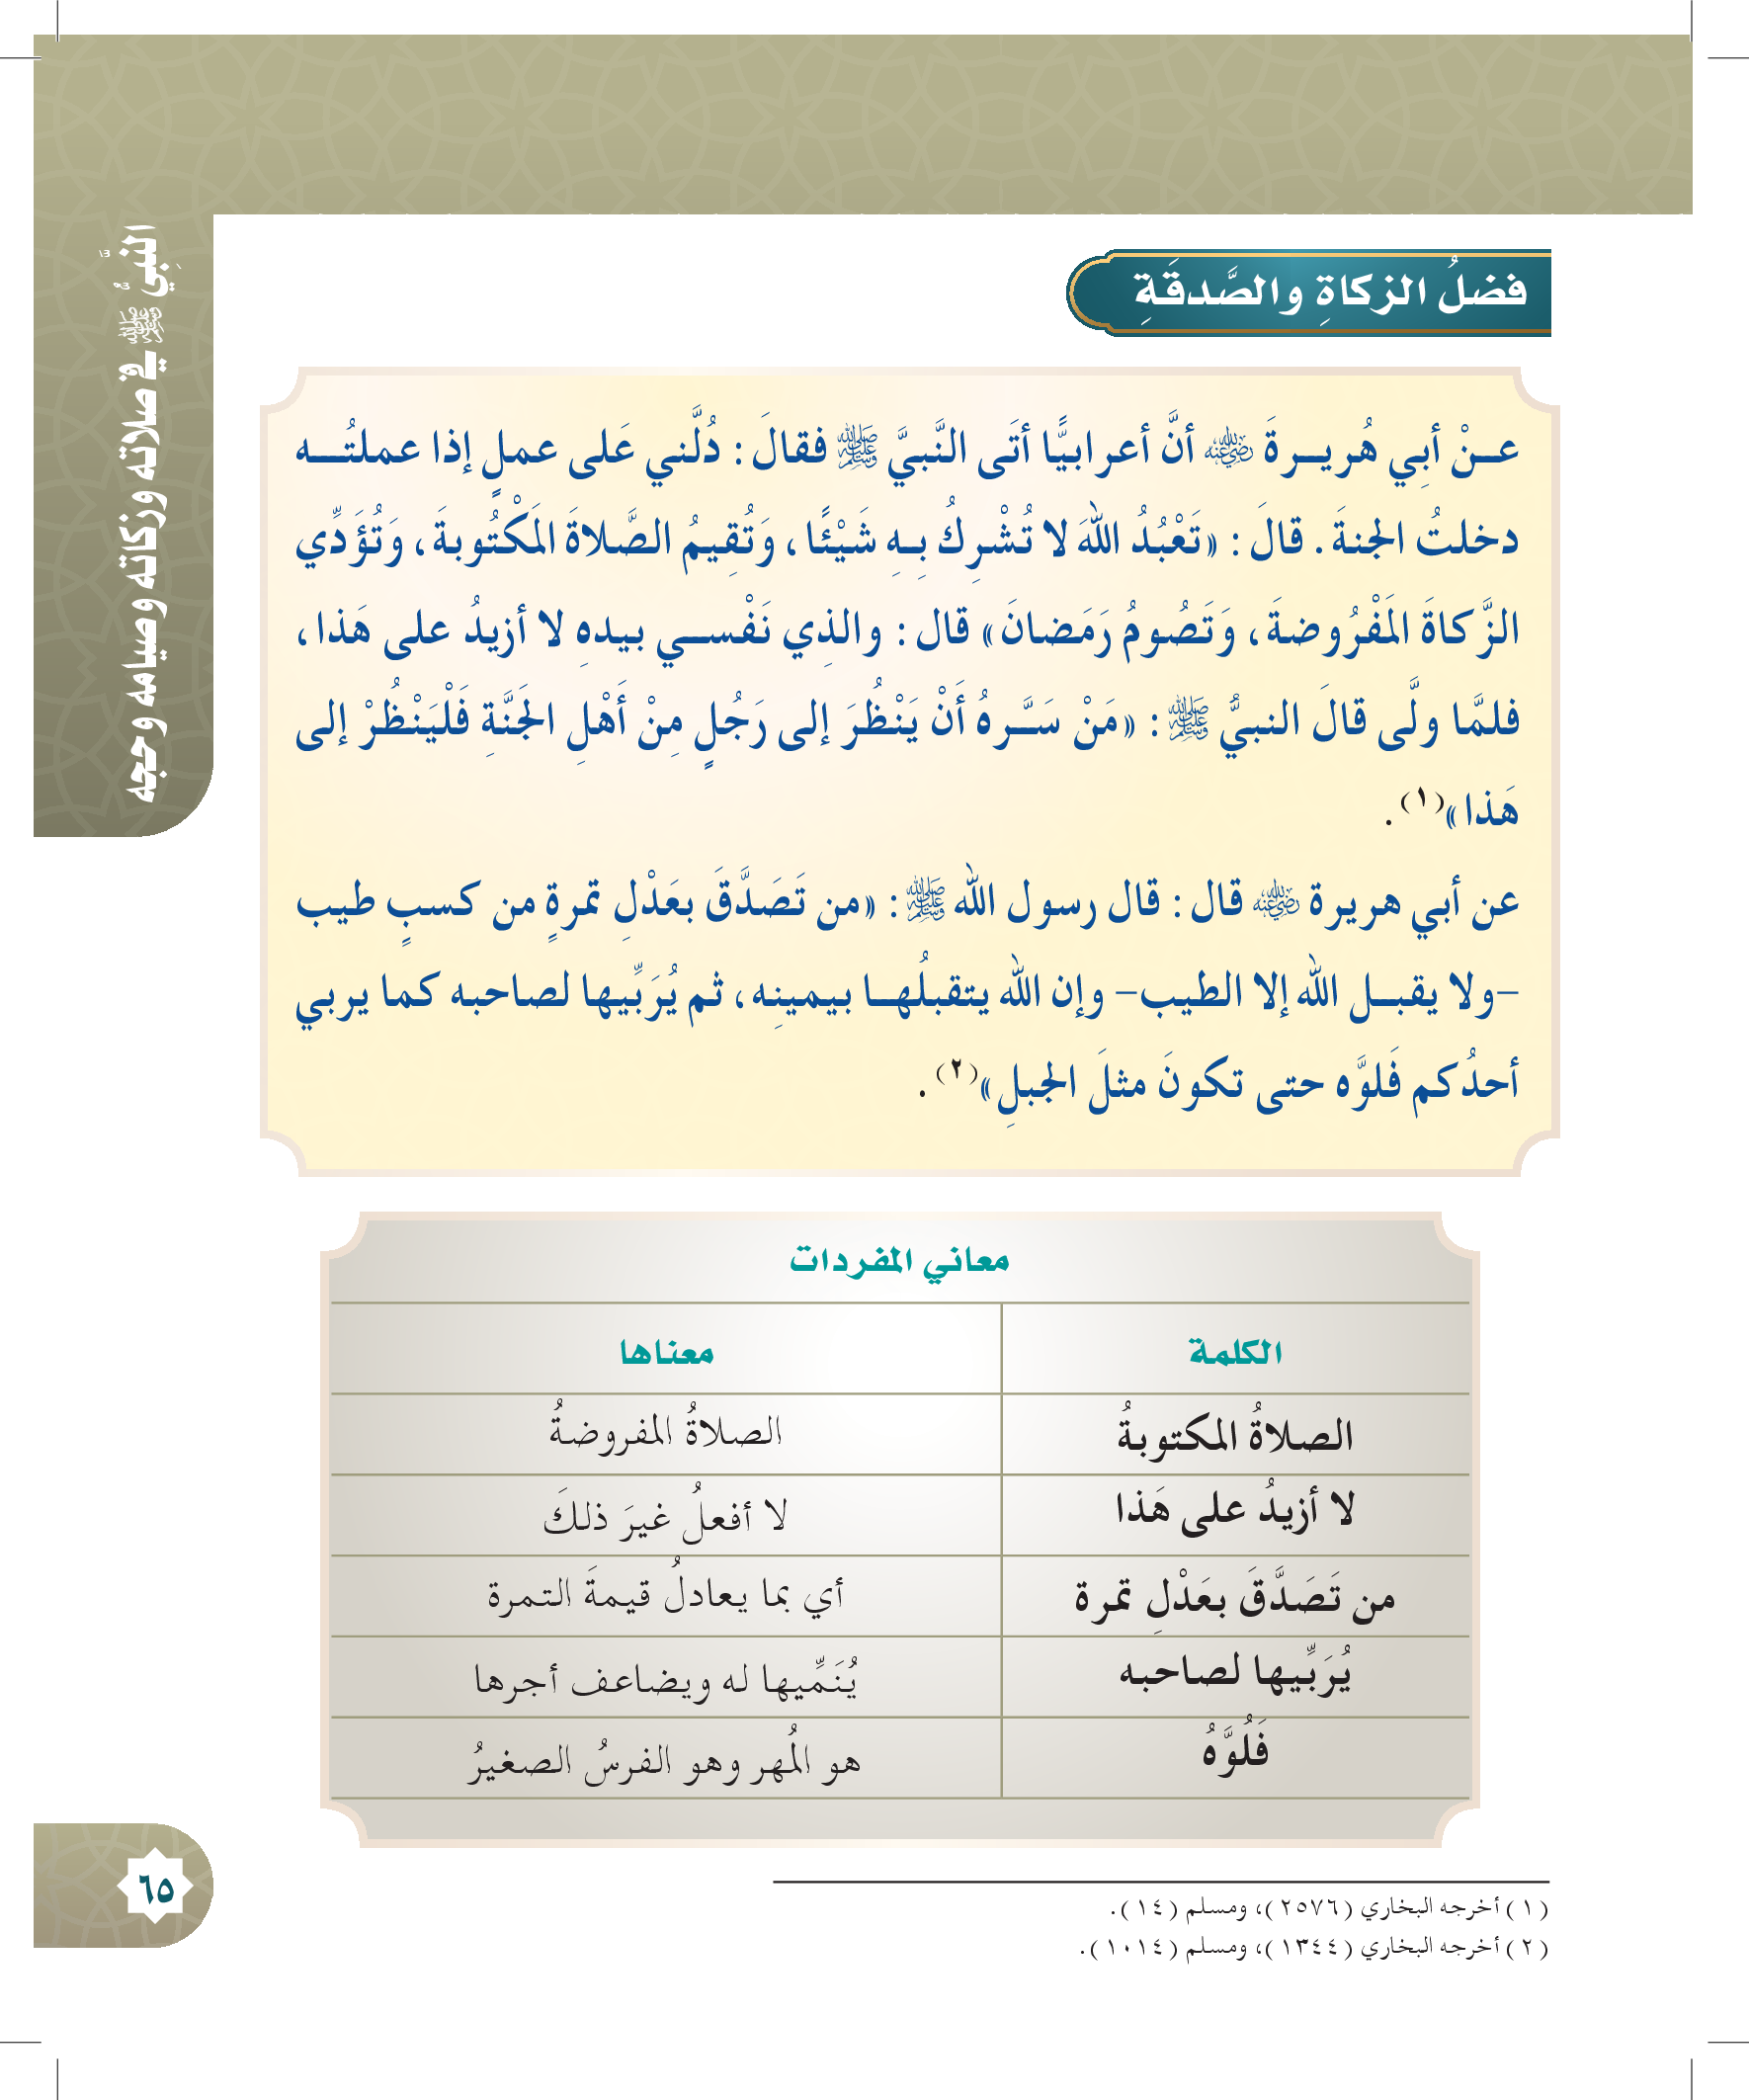 النَّبيُّ ﷺ في صلاته وزكاته وصيامه وحجه
فضلُ الزكاةِ والصَّدقَةِ
عـنْ أبِي هُريـرةَ رضي الله عنه أنَّ أعرابيًّا أتَى النَّبيَّ ﷺ فقالَ: دُلَّني عَلى عملٍ إذا عملتُـه
دخلتُ الجنةَ. قالَ: «تَعْبُدُ اللهَ لا تُشْرِكُ بِهِ شَيْئًا، وَتُقِيمُ الصَّلاةَ المَكْتُوبةَ، وَتُؤَدِّي
الزَّكاةَ المَفْرُوضةَ، وَتَصُومُ رَمَضانَ» قال: والذِي نَفْسـي بيدهِ لا أزيدُ على هَذا،
فلمَّا ولَّى قالَ النبيُّ ﷺ: «مَنْ سَـرَّهُ أَنْ يَنْظُرَ إلى رَجُلٍ مِنْ أَهْلِ الجَنَّةِ فَلْيَنْظُرْ إلى
هَذا»(١).
عن أبي هريرة رضي الله عنه قال: قال رسول الله ﷺ: «من تَصَدَّقَ بعَدْلِ تمرةٍ من كسبٍ طيب
-ولا يقبـل الله إلا الطيب- وإن الله يتقبلُهـا بيمينِه، ثم يُرَبِّيها لصاحبه كما يربي
أحدُكم فَلوَّه حتى تكونَ مثلَ الجبلِ»(٢).
معاني المفردات
الكلمة معناها
الصلاةُ المكتوبةُ الصلاةُ المفروضةُ
لا أزيدُ على هَذا لا أفعلُ غيرَ ذلكَ
من تَصَدَّقَ بعَدْلِ تمرة أي بما يعادلُ قيمةَ التمرة
يُرَبِّيها لصاحبه يُنَمِّيها له ويضاعف أجرها
فَلُوَّهُ هو المُهر وهو الفرسُ الصغيرُ
(١) أخرجه البخاري (٢٥٧٦)، ومسلم (١٤).
(٢) أخرجه البخاري (١٣٤٤)، ومسلم (١٠١٤).
٦٥